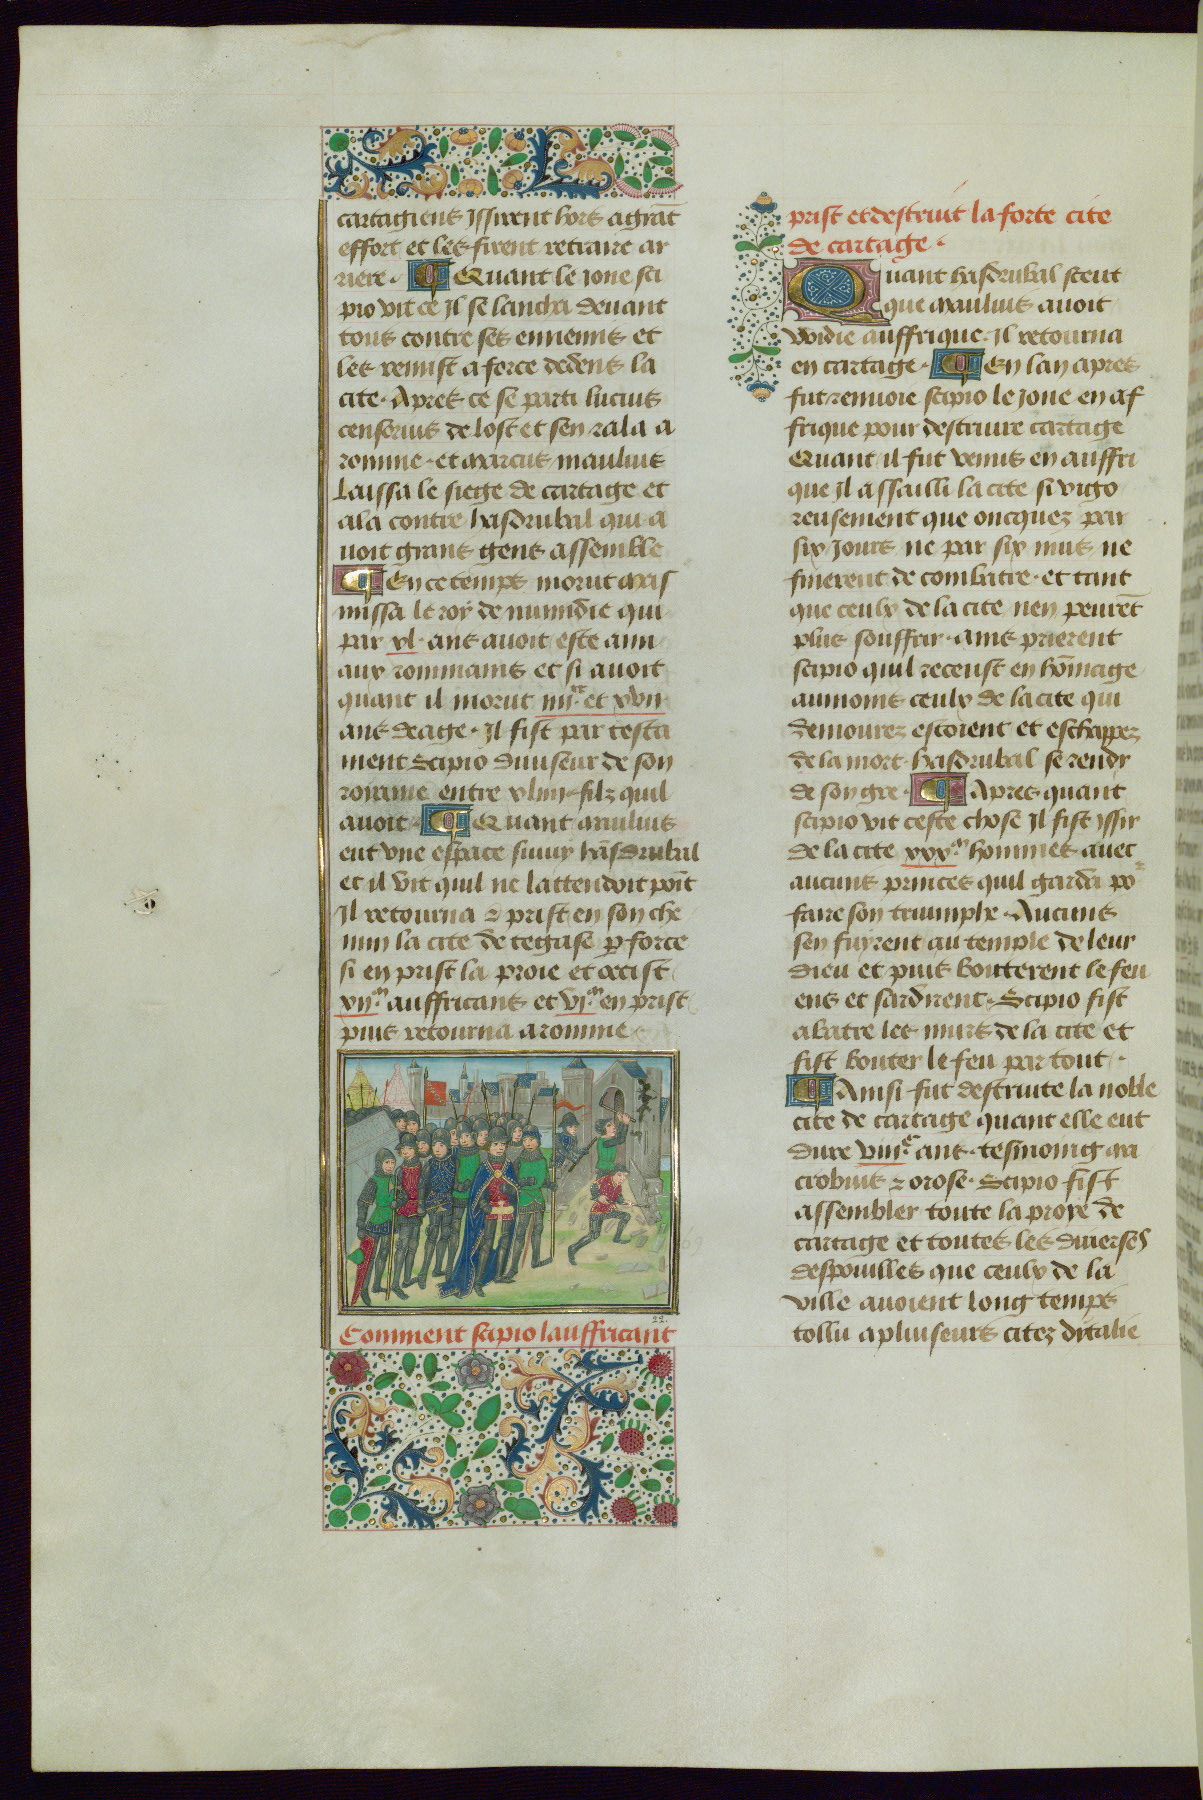 cartagiens Jssirent hors a grāt
effort et les firent retraire ar
riere · Quant le Jone sci
pio vit ce Jl se lancha deuant
tous contre ses ennemis et
les remist a force dedens la
cite · Apres ce se parti lucius
censorius de lost et sen rala a
romme · et marcus maulius
laissa le siege de cartage et
ala contre hasdrubal qui a
uoit grans gens assemble
En ce temps morut mas
missa le roy de numidie qui
par xl · ans auoit este ami
aux rommains et si auoit
quant il morut iiii.xx et xvii
ans deage · Jl fist par testa
ment Scipio diuiseur de son
roiaume entre xliiii filz quil
auoit · Quant maulius
eut vne espace siuuy hasdrubal
et il vit quil ne lattendoit poīt
Jl retourna & prist en son che
min la cite de tegase p force
si en prist la proie et occist
xii.m auffricans et vi.m en prist
puis retourna a romme
22.
Comment scipio lauffricant
prist et destruit la forte cite
de cartage ·
Quant hasdrubal sceut
que maulius auoit
widie auffrique · Jl retourna
en cartage · En lan apres
fut renuoie scipio le Jone en af
frique pour destruire cartage
Quant il fut venus en auffri
que Jl assailli la cite si vigo
reusement que oncquez par
six Jours ne par six nuis ne
finerent de combatre · et tant
que ceulx de la cite nen peurēt
plus souffrir · ains prierent
scipio quil receust en hōmage
aumoins ceulx de la cite qui
demourez estoient et eschappez
de la mort · hasdrubal se rendy
de son gre · Apres quant
scipio vit ceste chose Jl fist Jssir
de la cite xxx.m hommes auec
aucuns princes quil garda po
faire son triumphe · Aucuns
sen fuyrent au temple de leur
dieu et puis bouterent le feu
ens et sardirent · Scipio fist
abatre les murs de la cite et
fist bouter le feu par tout ·
Ainsi fut destruite la noble
cite de cartage quant elle eut
dure viii.c ans · tesmoing ma
crobius & orose · Scipio fist
assembler toute la proye de
cartage et toutes les diuerses
despouilles que ceulx de la
ville auoient long temps
tollu a pluiseurs citez dytalie